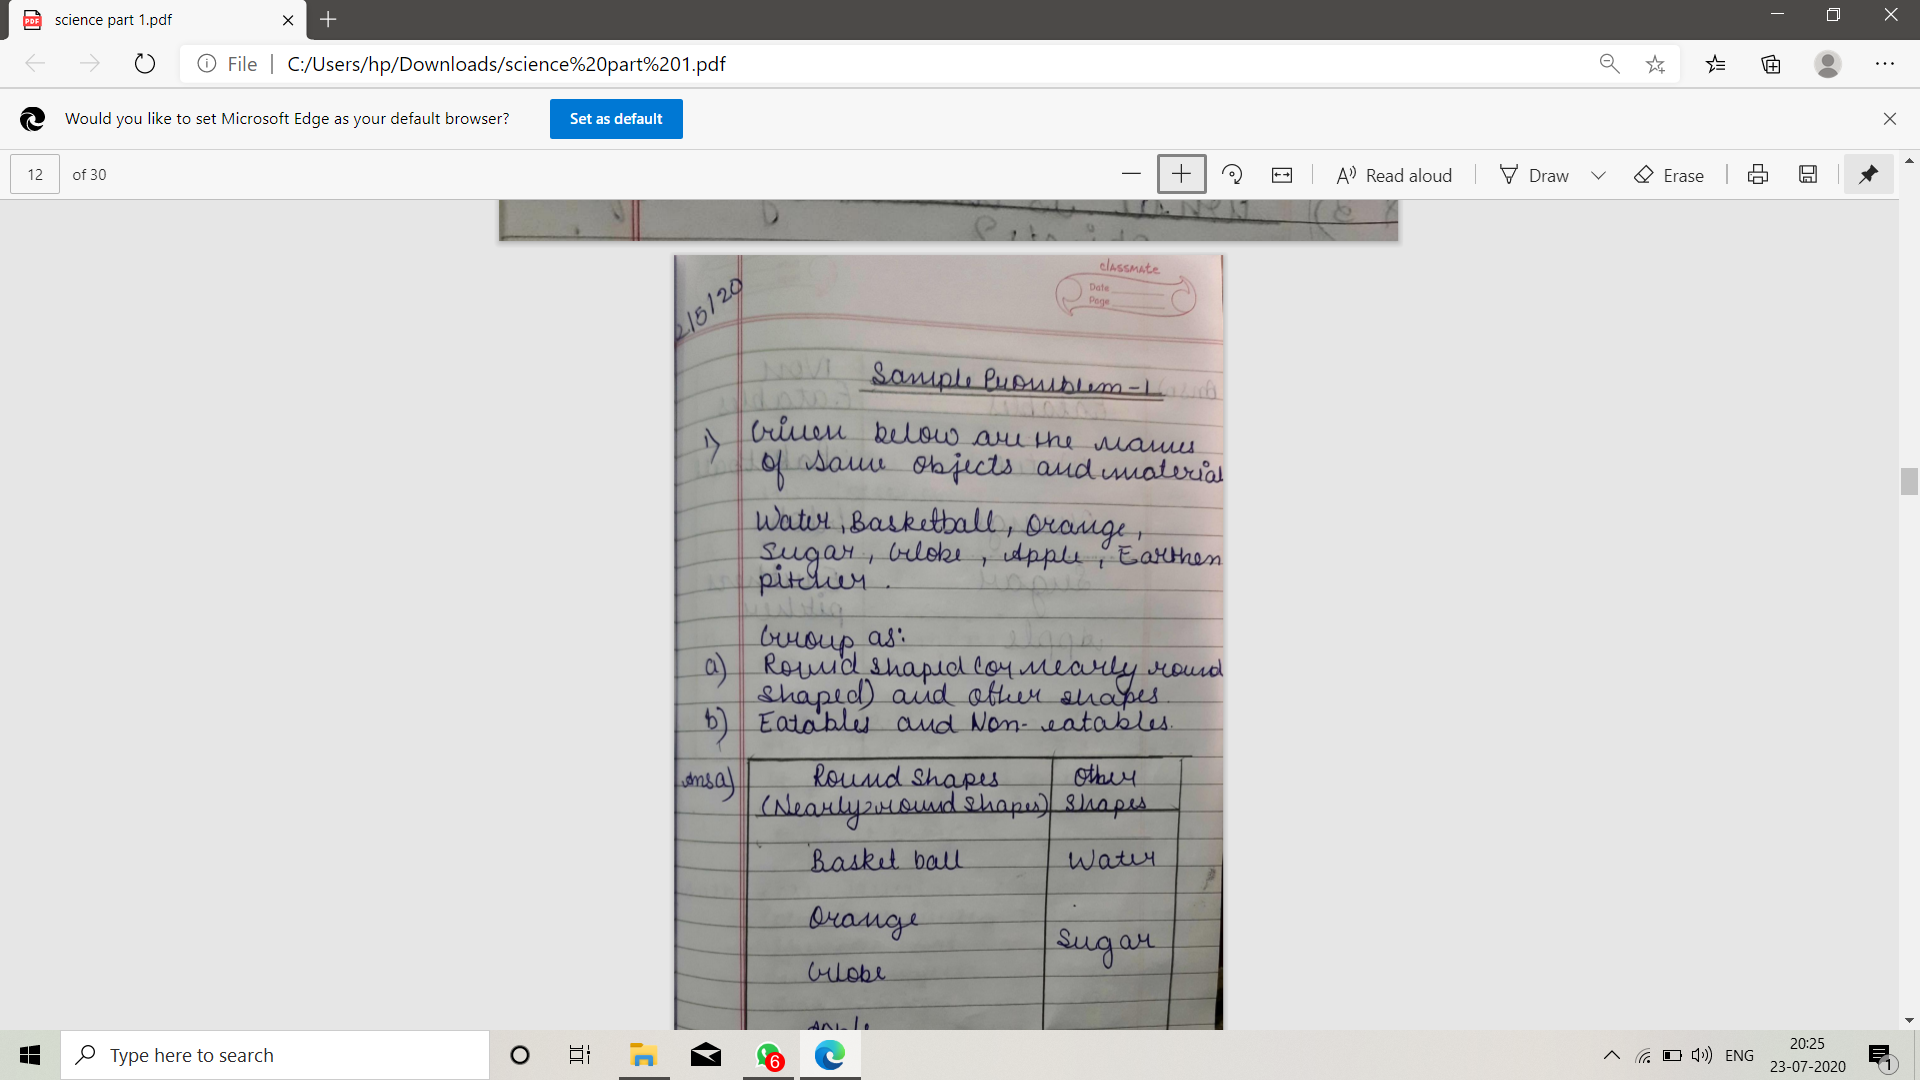 science part 1.pdf
File
C:/Users/hp/Downloads/science%20part%201.pdf
Would you like to set Microsoft Edge as your default browser?
Set as default
12 of 30
Read aloud
Draw
Erase
classmate
Date
Page
2/5/20
Sample Problem-1
1) Given below are the names
of same objects and material
Water, Basketball, Orange,
Sugar, Globe, Apple, Earthen
pitcher.
Group as:
a) Round shaped (or nearly round
shaped) and other shapes.
b) Eatables and Non-eatables.
Ans a) Round shapes Other
(Nearly round shapes) shapes
Basket ball Water
Orange
Sugar
Globe
Apple
Type here to search
6
ENG
20:25
23-07-2020
1